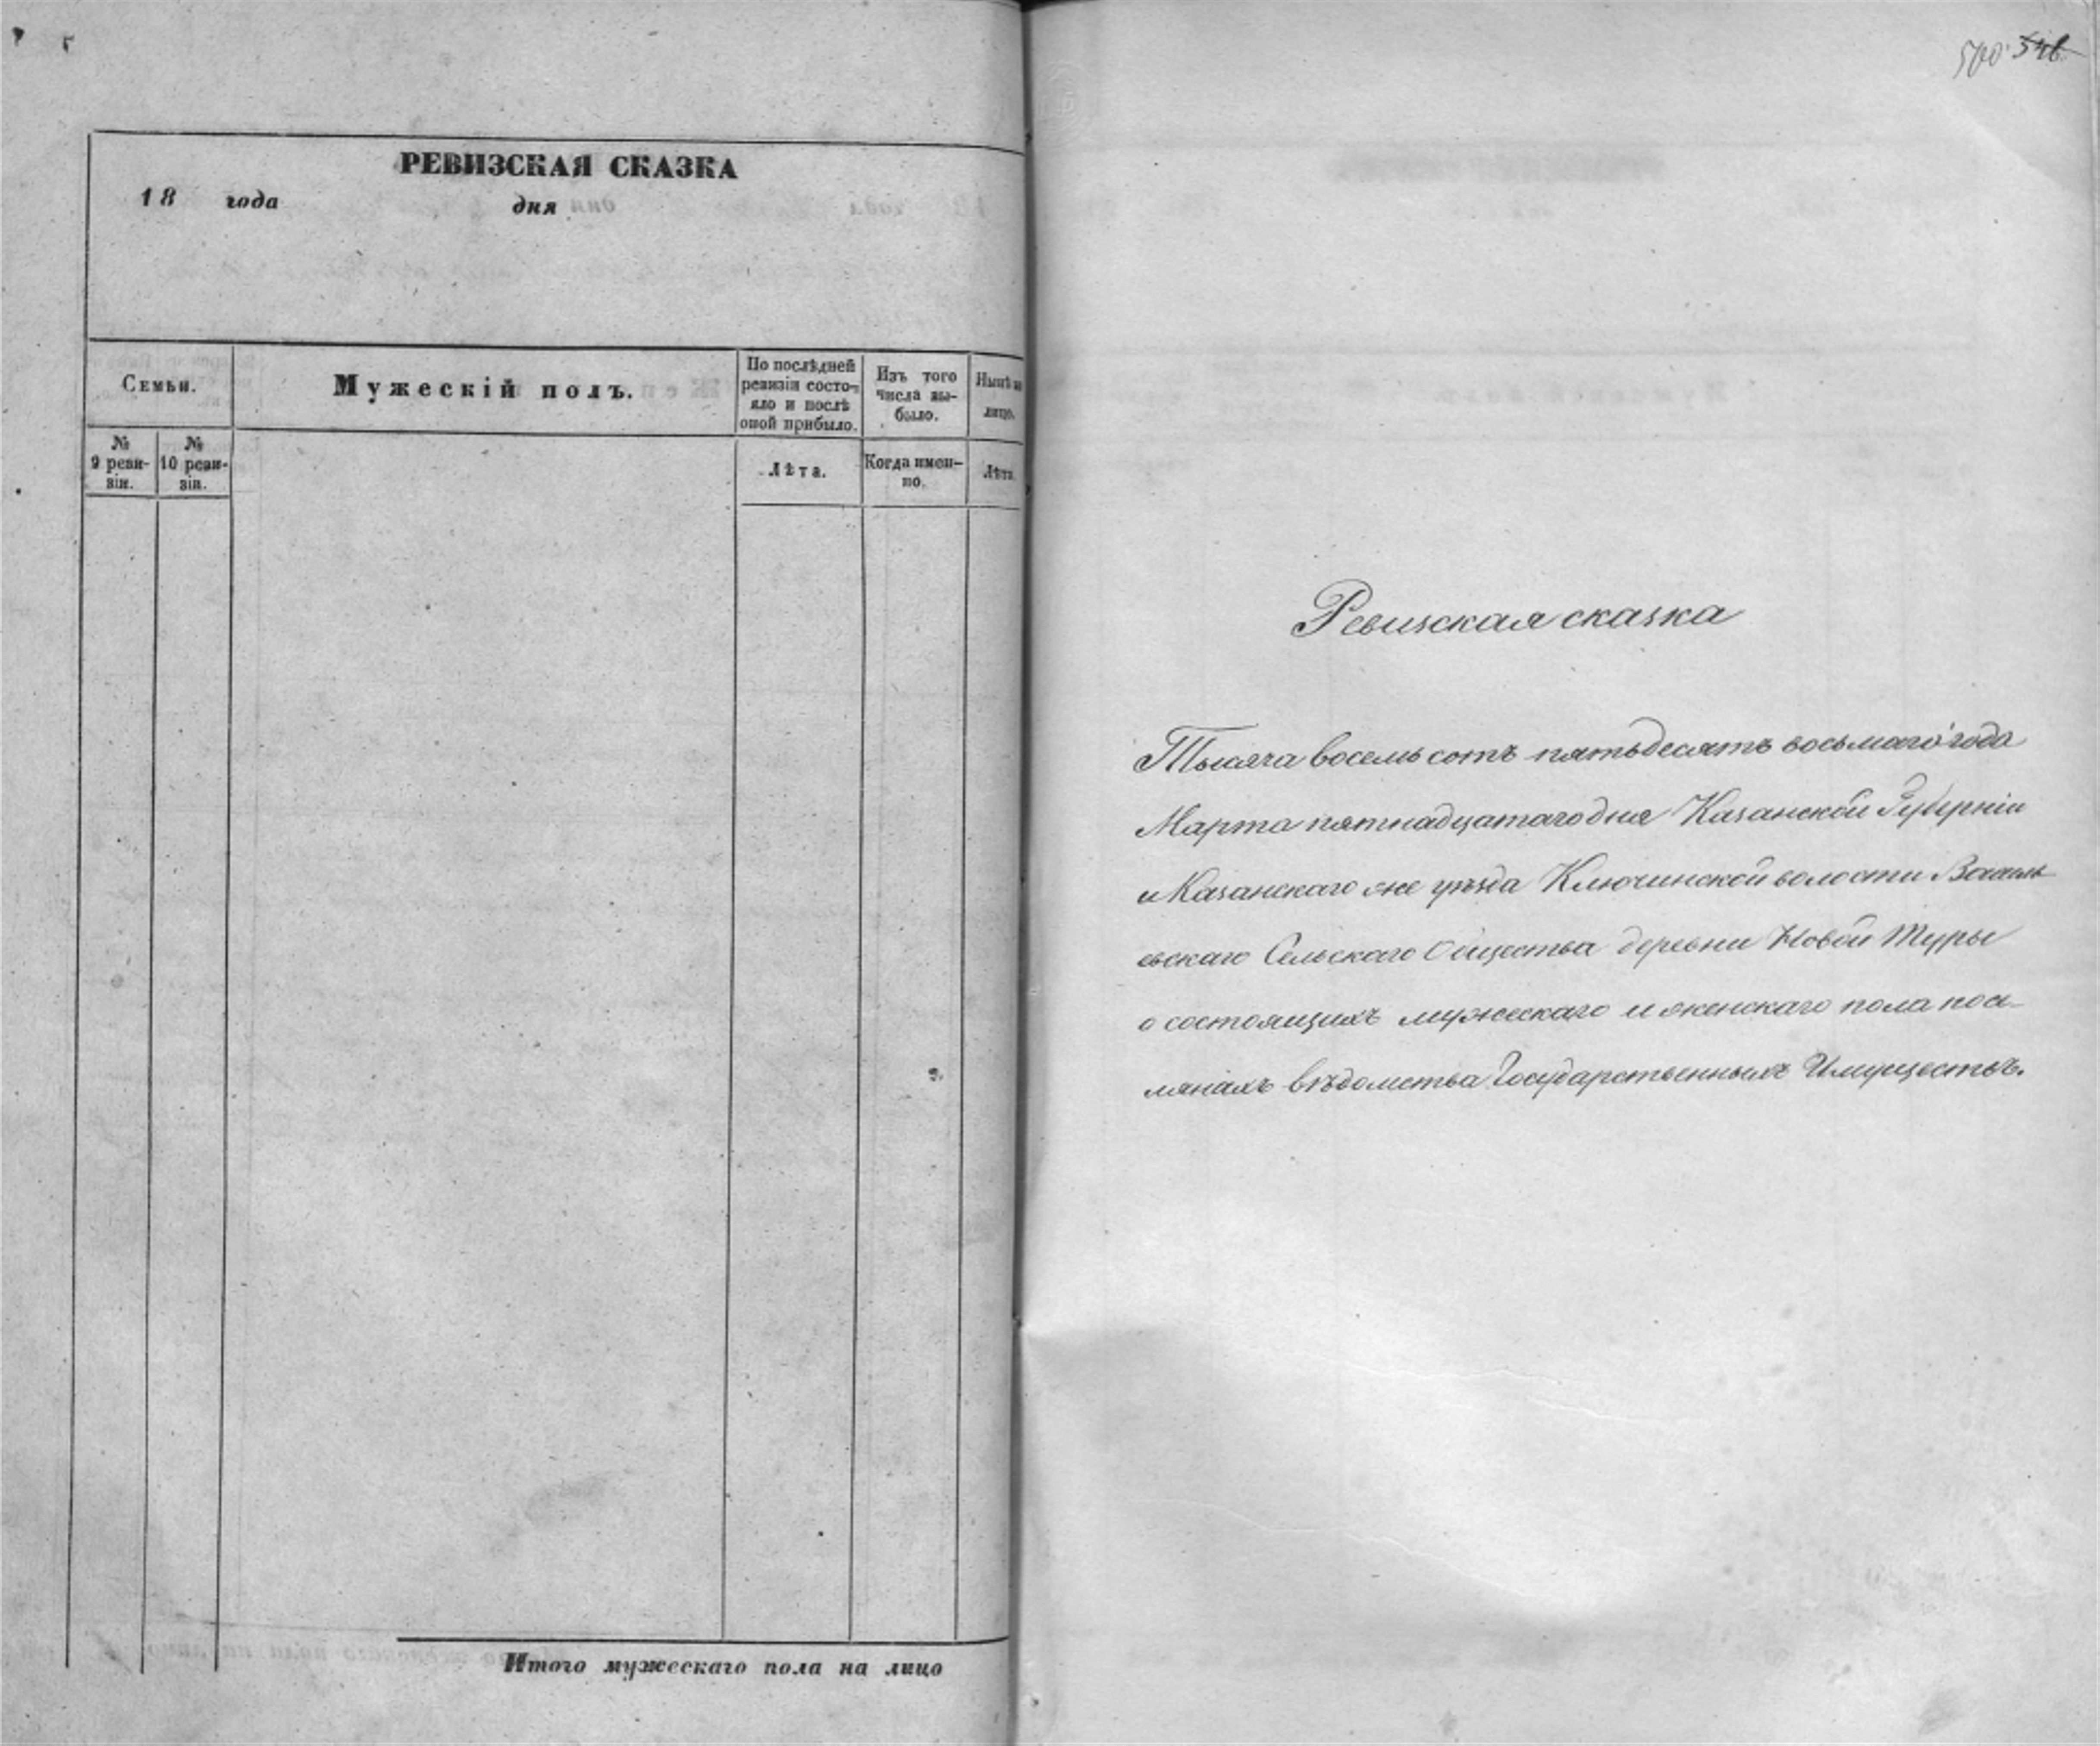 РЕВИЗСКАЯ СКАЗКА
18 года дня
Семьи.
Мужескій полъ.
По послѣдней
ревизіи состо-
яло и послѣ
оной прибыло.
Изъ того
числа вы-
было.
Нынѣ на
лицо.
№
9 реви-
зіи.
№
10 реви-
зіи.
Лѣта.
Когда имен-
но.
Лѣта.
Итого мужескаго пола на лицо
Ревизская сказка
Тысяча восемь сотъ пятьдесятъ восьмаго года
Марта пятнадцатаго дня Казанской Губерніи
и Казанскаго же уѣзда Ключинской волости Василь
евскаго Сельскаго Общества деревни Новой Туры
о состоящихъ мужескаго и женскаго пола посе-
лянахъ вѣдомства Государственныхъ Имуществъ.